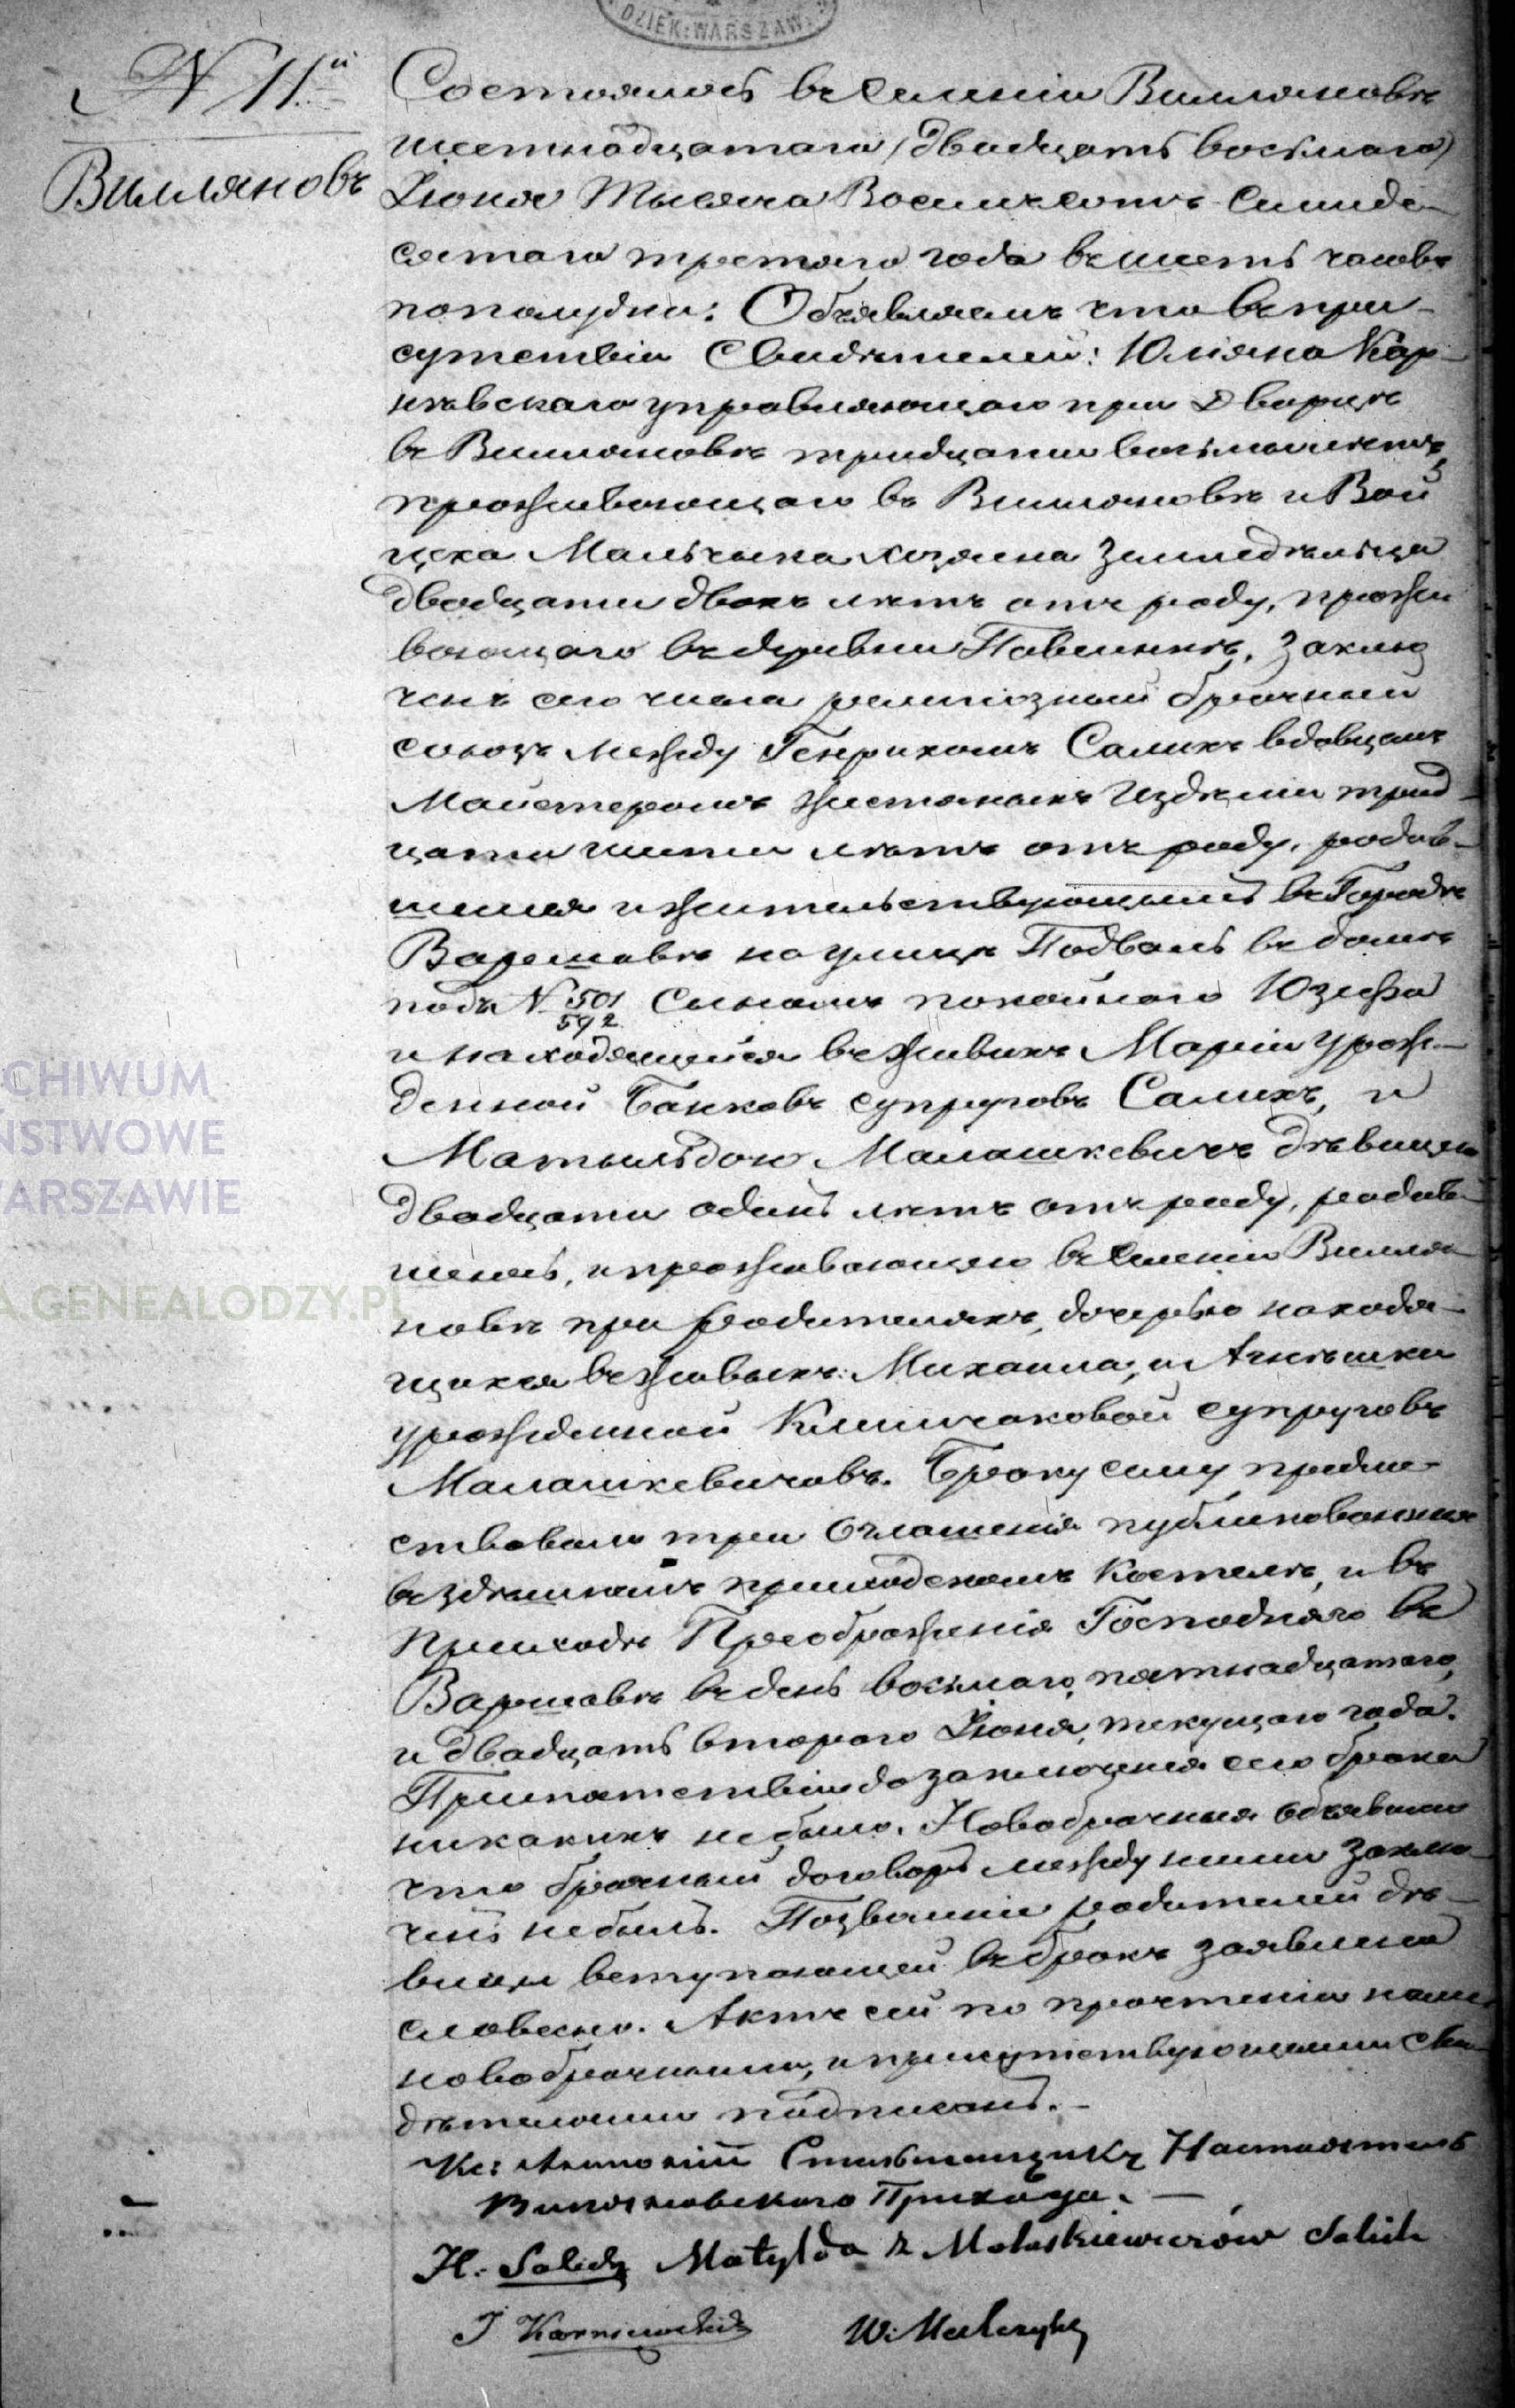 DZIEK: WARSZAW.
N 11й
Виляновъ
Состоялось въ селеніи Виляновѣ
шестнадцатаго (двадцать восьмаго)
Іюня Тысяча Восемьсотъ Семиде-
сятаго третяго года въ шесть часовъ
пополудни: Объявляемъ что въ при-
сутствіи Свидѣтелей: Юліяна Кар-
нѣвскаго управляющаго при Дворцѣ
въ Виляновѣ тридцати восьми лѣтъ,
проживающаго въ Виляновѣ и Вой
цѣха Мальчыка хозяина Земледѣльца
двадцати двохъ лѣтъ отъ роду, прожи
вающаго въ деревни Повсинкѣ, Заклю
ченъ сего числа религіозный брачный
союзъ между Генрихомъ Салихъ вдовцемъ
Майстеромъ жестяныхъ Издѣлій трид-
цати шти лѣтъ отъ роду, родив-
шимся и жительствующимъ въ Городѣ
Варшавѣ на улицѣ Подваль въ домѣ
подъ N 501
592 Сыномъ покойнаго Юзефа
и находящейся въ живыхъ Маріи урож-
денной Банковъ супруговъ Салихъ, и
Матыльдою Малашкевичъ дѣвицею
двадцати одинъ лѣтъ отъ роду, родив-
шеюсь, и проживающею въ селеніи Виля-
новѣ при родителяхъ, дочерью находя-
щихся въ живыхъ: Михаила, и Агнѣшки
урожденной Климчаковой супруговъ
Малашкевичовъ. Браку сему предше-
ствовали три Оглашенія публикованныя
въ здѣшномъ приходскомъ Костелѣ, и въ
приходѣ Преображенія Господняго въ
Варшавѣ въ день восьмаго, пятнадцатаго,
и двадцать втораго Іюня, текущаго года.
Припятствія до заключенія сего брака
никакихъ небыло. Новобрачныя объявили
что брачный договоръ между ними заклю-
ченъ небылъ. Позволеніе родителей дѣ-
вицы вступающей въ бракъ заявлено
словесно. Актъ сей по прочтеніи нами
новобрачными, и присутствующими сви-
дѣтелями подписанъ. -
Кс: Антоній Настоятель
Виляновскаго Прихода. —
H. Salich Matylda z Małaskiewiczów Salich
J Karniewski W: Malczyk
ARCHIWUM
PAŃSTWOWE
W WARSZAWIE
GENEALODZY.PL